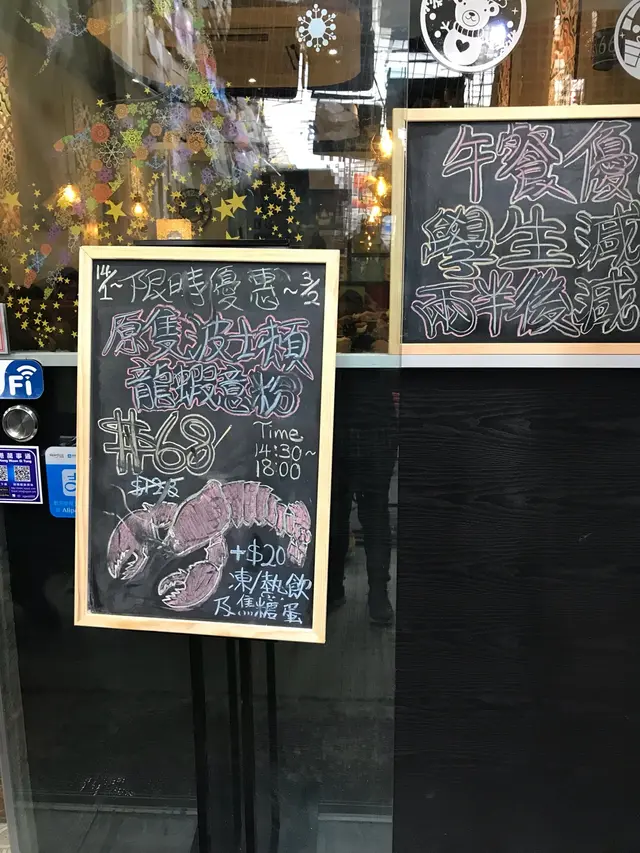 14/1~限時優惠~3/2
原隻波士頓
龍蝦意粉
$68
Time
14:30~
18:00
+$20
凍/熱飲
及焦糖蛋
午餐優
學生減
兩半後減
Fi